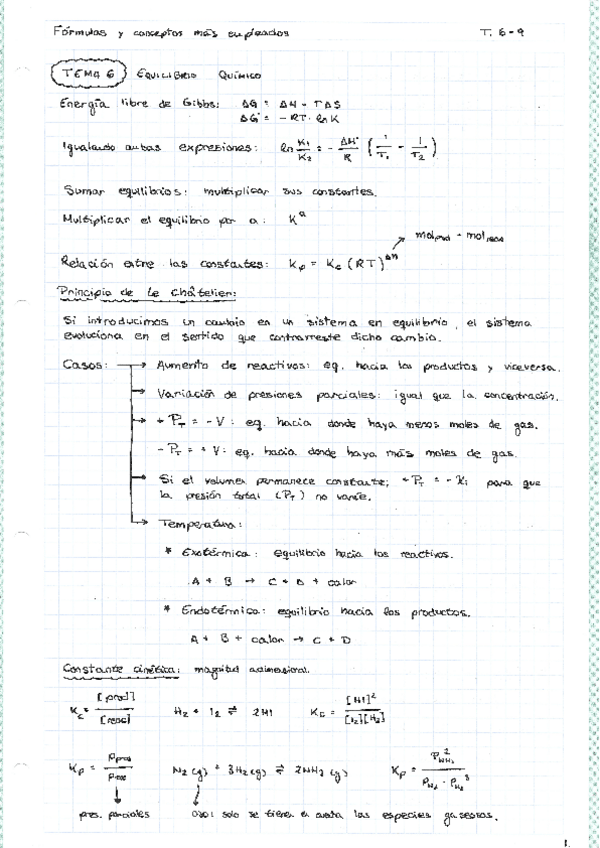 Fórmulas y conceptos más empleados T. 6-9
TEMA 6 EQUILIBRIO QUÍMICO
Energía libre de Gibbs: ΔG = ΔH - TΔS
ΔG° = - RT · ln K
Igualando ambas expresiones: ln K₁/K₂ = - ΔH°/R (1/T₁ - 1/T₂)
Sumar equilibrios: multiplicar sus constantes.
Multiplicar el equilibrio por a: Kᵃ
mol prod - mol reac
Relación entre las constantes: Kp = Kc (RT)^Δn
Principio de Le Châtelier:
Si introducimos un cambio en un sistema en equilibrio, el sistema
evoluciona en el sentido que contrarreste dicho cambio.
Casos: → Aumento de reactivos: eq. hacia los productos y viceversa.
→ Variación de presiones parciales: igual que la concentración.
→ + P_T = - V: eq. hacia donde haya menos moles de gas.
- P_T = + V: eq. hacia donde haya más moles de gas.
→ Si el volumen permanece constante; + P_T = - Xi para que
la presión total (P_T) no varíe.
→ Temperatura:
* Exotérmica: equilibrio hacia los reactivos.
A + B → C + D + calor
* Endotérmica: equilibrio hacia los productos.
A + B + calor → C + D
Constante cinética: magnitud adimensional.
Kc = [prod]/[reac] H₂ + I₂ ⇌ 2HI Kc = [HI]²/[I₂][H₂]
Kp = Pprod/Preac N₂(g) + 3H₂(g) ⇌ 2NH₃(g) Kp = P_NH₃²/P_N₂ · P_H₂³
pres. parciales ojo: solo se tienen en cuenta las especies gaseosas.
1.